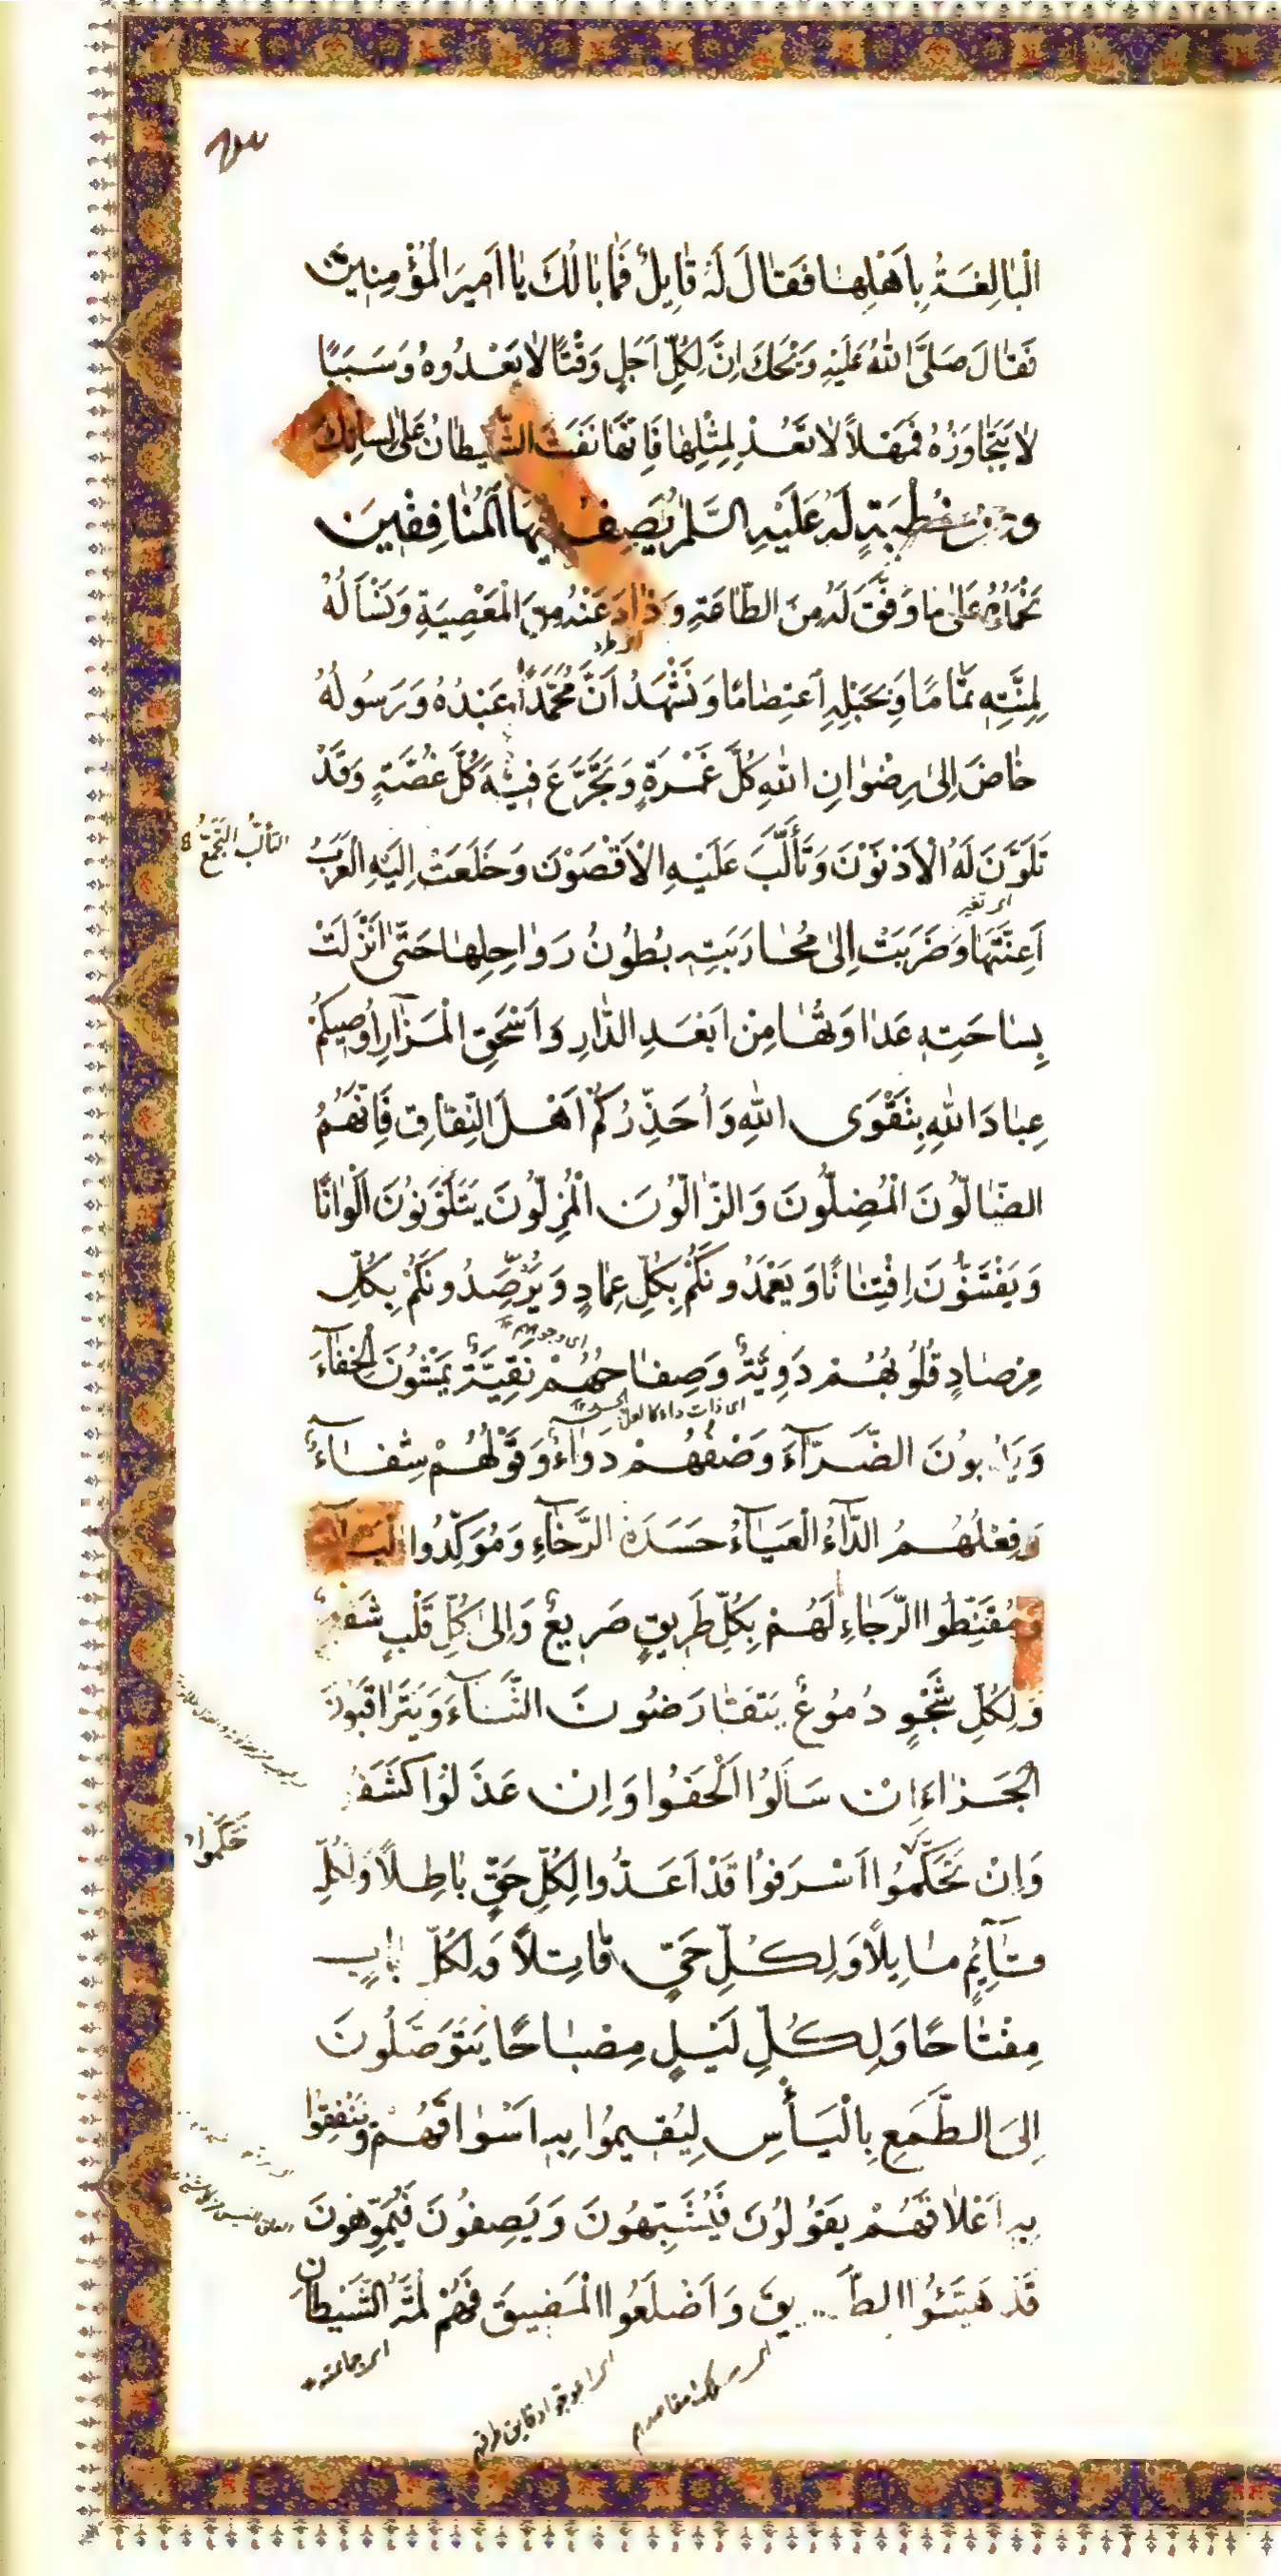 الْبالِغَةُ بِاَهْلِها فَقالَ لَهُ قايِلٌ فَما بالُكَ يا اَميرَ الْمُؤْمِنينَ
فَقالَ صَلَّى اللهُ عَلَيْهِ وَيْحَكَ اِنَّ لِكُلِّ اَجَلٍ وَقْتًا لا يَعْدُوهُ وَسَبَبًا
لا يَتَجاوَزُهُ فَمَهْلاً لا تَعُدْ لِمِثْلِها فَاِنَّما نَفَثَ الشَّيطانُ عَلى لِسانِكَ
ومن خُطْبَةٍ لَهُ عَلَيْهِ السَّلمُ يَصِفُ فيهَا الْمُنافِقينَ
نَحْمَدُهُ عَلى ما وَفَّقَ لَهُ مِنَ الطّاعَةِ وَذادَ عَنْهُ مِنَ الْمَعْصِيَةِ وَنَسْاَلُهُ
اى طرد
لِمِنَّتِهِ تَمامًا وَبِحَبْلِهِ اعْتِصامًا وَنَشْهَدُ اَنَّ مُحَمَّدًا عَبْدُهُ وَرَسُولُهُ
خاضَ اِلى رِضْوانِ اللهِ كُلَّ غَمْرَةٍ وَتَجَرَّعَ فيهِ كُلَّ غُصَّةٍ وَقَدْ
تَلَوَّنَ لَهُ الْاَدْنَوْنَ وَتَأَلَّبَ عَلَيْهِ الْاَقْصَوْنَ وَخَلَعَتْ اِلَيْهِ الْعَرَبُ
التألّب التجمّع
اى تغير
اَعِنَّتَها وَضَرَبَتْ اِلى مُحارَبَتِهِ بُطُونُ رَواحِلِها حَتّى اَنْزَلَتْ
بِساحَتِهِ عَداوَتَها مِنْ اَبْعَدِ الدّارِ وَاَسْحَقِ الْمَزارِ اُوصيكُمْ
عِبادَ اللهِ بِتَقْوَى اللهِ وَاُحَذِّرُكُمْ اَهْلَ النِّفاقِ فَاِنَّهُمُ
الضّالُّونَ الْمُضِلُّونَ وَالزّالُّونَ الْمُزِلُّونَ يَتَلَوَّنُونَ اَلْوانًا
وَيَفْتَنُّونَ اِفْتِنانًا وَيَعْمِدُونَكُمْ بِكُلِّ عِمادٍ وَيَرْصُدُونَكُمْ بِكُلِّ
مِرْصادٍ قُلُوبُهُمْ دَوِيَّةٌ وَصِفاحُهُمْ نَقِيَّةٌ يَمْشُونَ الْخَفاءَ
اى وجوههم
اى ذات داء
وَيَدِبُّونَ الضَّرّاءَ وَصْفُهُمْ دَواءٌ وَقَوْلُهُمْ شِفاءٌ
وَفِعْلُهُمُ الدّاءُ الْعَياءُ حَسَدَةُ الرَّخاءِ وَمُوَكِّدُوا الْبَلاءِ
وَمُقَنِّطُوا الرَّجاءِ لَهُمْ بِكُلِّ طَريقٍ صَريعٌ وَاِلى كُلِّ قَلْبٍ شَفيعٌ
وَلِكُلِّ شَجْوٍ دُمُوعٌ يَتَقارَضُونَ الثَّناءَ وَيَتَراقَبُونَ
الْجَزاءَ اِنْ سَاَلُوا اَلْحَفُوا وَاِنْ عَذَلُوا كَشَفُوا
حَكَمُوا
وَاِنْ تَحَكَّمُوا اَسْرَفُوا قَدْ اَعَدُّوا لِكُلِّ حَقٍّ باطِلاً وَلِكُلِّ
قائِمٍ مايِلاً وَلِكُلِّ حَيٍّ قاتِلاً وَلِكُلِّ بابٍ
مِفْتاحًا وَلِكُلِّ لَيْلٍ مِصْباحًا يَتَوَصَّلُونَ
اِلَى الطَّمَعِ بِالْيَأْسِ لِيُقيمُوا بِهِ اَسْواقَهُمْ وَيُنْفِقُوا
بِهِ اَعْلاقَهُمْ يَقُولُونَ فَيُشَبِّهُونَ وَيَصِفُونَ فَيُمَوِّهُونَ
قَدْ هَيَّئُوا الطَّريقَ وَاَضْلَعُوا الْمَضيقَ فَهُمْ لُمَةُ الشَّيْطانِ
اى جماعته